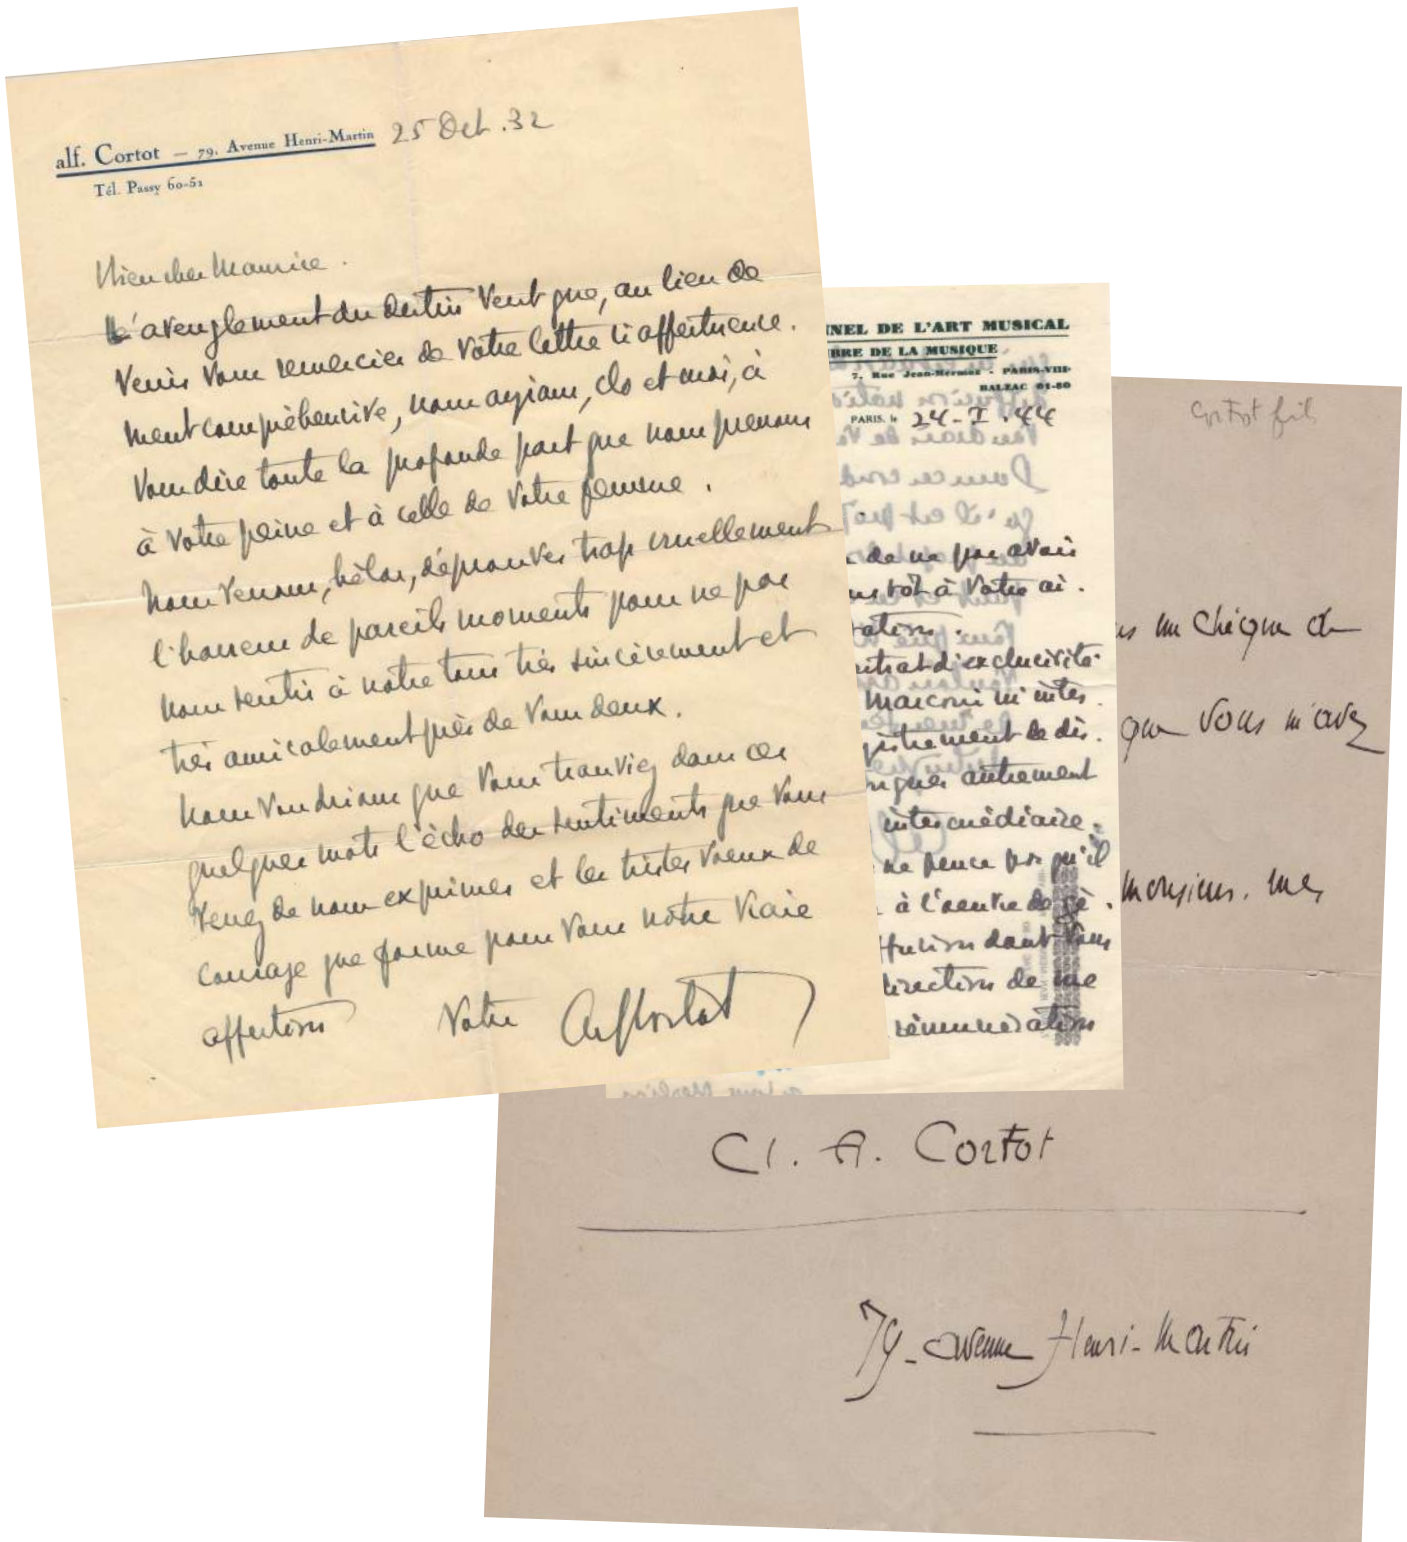 alf. Cortot — 79, Avenue Henri-Martin 25 Oct. 32
Tél. Passy 60-52
Mien cher Maurice.
L'aveuglement du destin veut que, au lieu de
venir vous remercier de votre lettre si affectueuse-
ment compréhensive, nous ayions, Clo et moi, à
vous dire toute la profonde part que nous prenons
à votre peine et à celle de votre femme.
Nous venons, hélas, d'éprouver trop cruellement
l'horreur de pareils moments pour ne pas
nous sentir à notre tour très sincèrement et
très amicalement près de vous deux.
Nous voudrions que vous trouviez dans ces
quelques mots l'écho des sentiments que vous
venez de nous exprimer et les tristes vœux de
courage que forme pour vous notre vraie
affection Votre Alf Cortot
NNEL DE L'ART MUSICAL
BRE DE LA MUSIQUE
7, Rue Jean-Mermoz - PARIS-VIII
BALZAC 01-80
PARIS, le 24-I-44
de ne pas avoir
us tôt à votre ai.
ntrat d'exclusivité
Marconi m'inter.
gistrement le dis.
igner autrement
intermédiaire.
ne pense pas qu'il
à l'œuvre de gé.
ffusion dont vous
direction de me
rémunération
Cortot fils
us un chèque de
que vous m'avez
Monsieur, mes
Cl. A. Cortot
79 - avenue Henri-Martin